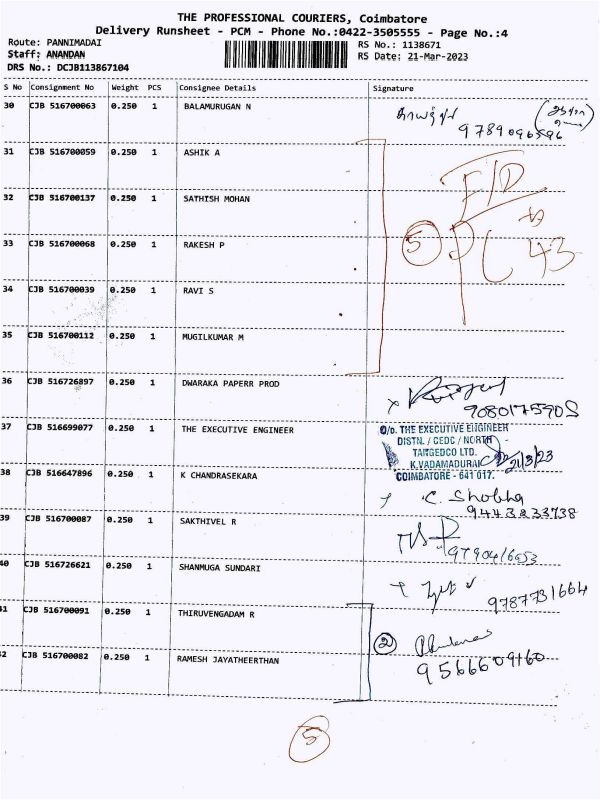 THE PROFESSIONAL COURIERS, Coimbatore
Delivery Runsheet - PCM - Phone No.:0422-3505555 - Page No.:4
Route: PANNIMADAI
RS No.: 1138671
Staff: ANANDAN
RS Date: 21-Mar-2023
DRS No.: DCJB113867104
S No Consignment No Weight PCS Consignee Details Signature
30 CJB 516700063 0.250 1 BALAMURUGAN N
9789096596
31 CJB 516700059 0.250 1 ASHIK A
F/D
32 CJB 516700137 0.250 1 SATHISH MOHAN
33 CJB 516700068 0.250 1 RAKESH P
5 43
34 CJB 516700039 0.250 1 RAVI S
35 CJB 516700112 0.250 1 MUGILKUMAR M
36 CJB 516726897 0.250 1 DWARAKA PAPERR PROD
9080175905
37 CJB 516699077 0.250 1 THE EXECUTIVE ENGINEER
O/o. THE EXECUTIVE ENGINEER
DISTN. / CEDC / NORTH
TANGEDCO LTD.
K.VADAMADURAI
21/3/23
COIMBATORE - 641 017.
38 CJB 516647896 0.250 1 K CHANDRASEKARA
C. Shobha
9443233738
39 CJB 516700087 0.250 1 SAKTHIVEL R
9790416953
40 CJB 516726621 0.250 1 SHANMUGA SUNDARI
9787731664
41 CJB 516700091 0.250 1 THIRUVENGADAM R
2
42 CJB 516700082 0.250 1 RAMESH JAYATHEERTHAN
9566609160
5